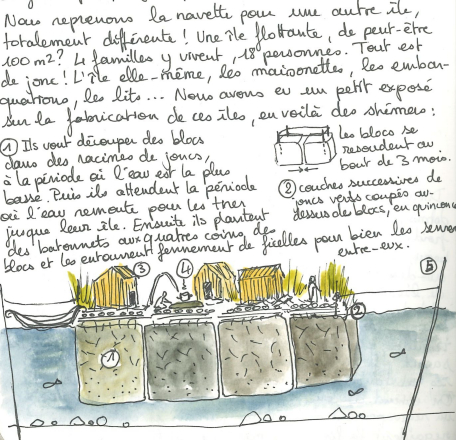 Nous reprenons la navette pour une autre île,
totalement différente ! Une île flottante, de peut-être
100 m2 ? 4 familles y vivent, 18 personnes. Tout est
de jonc ! L'île elle-même, les maisonettes, les embar-
quations, les lits... Nous avons eu un petit exposé
sur la fabrication de ces îles, en voilà des shémas :
① Ils vont découper des blocs
dans des racines de joncs,
à la période où l'eau est la plus
basse. Puis ils attendent la période
où l'eau remonte pour les tirer
jusque leur île. Ensuite ils plantent
des batonnets aux quatres coins des
blocs et les entourent fermement de ficelles pour bien les serrer
entre-eux.
les blocs se
resoudent au
bout de 3 mois.
② couches successives de
joncs verts coupés au-
dessus de blocs, en quinconce
③
④
⑤
②
①